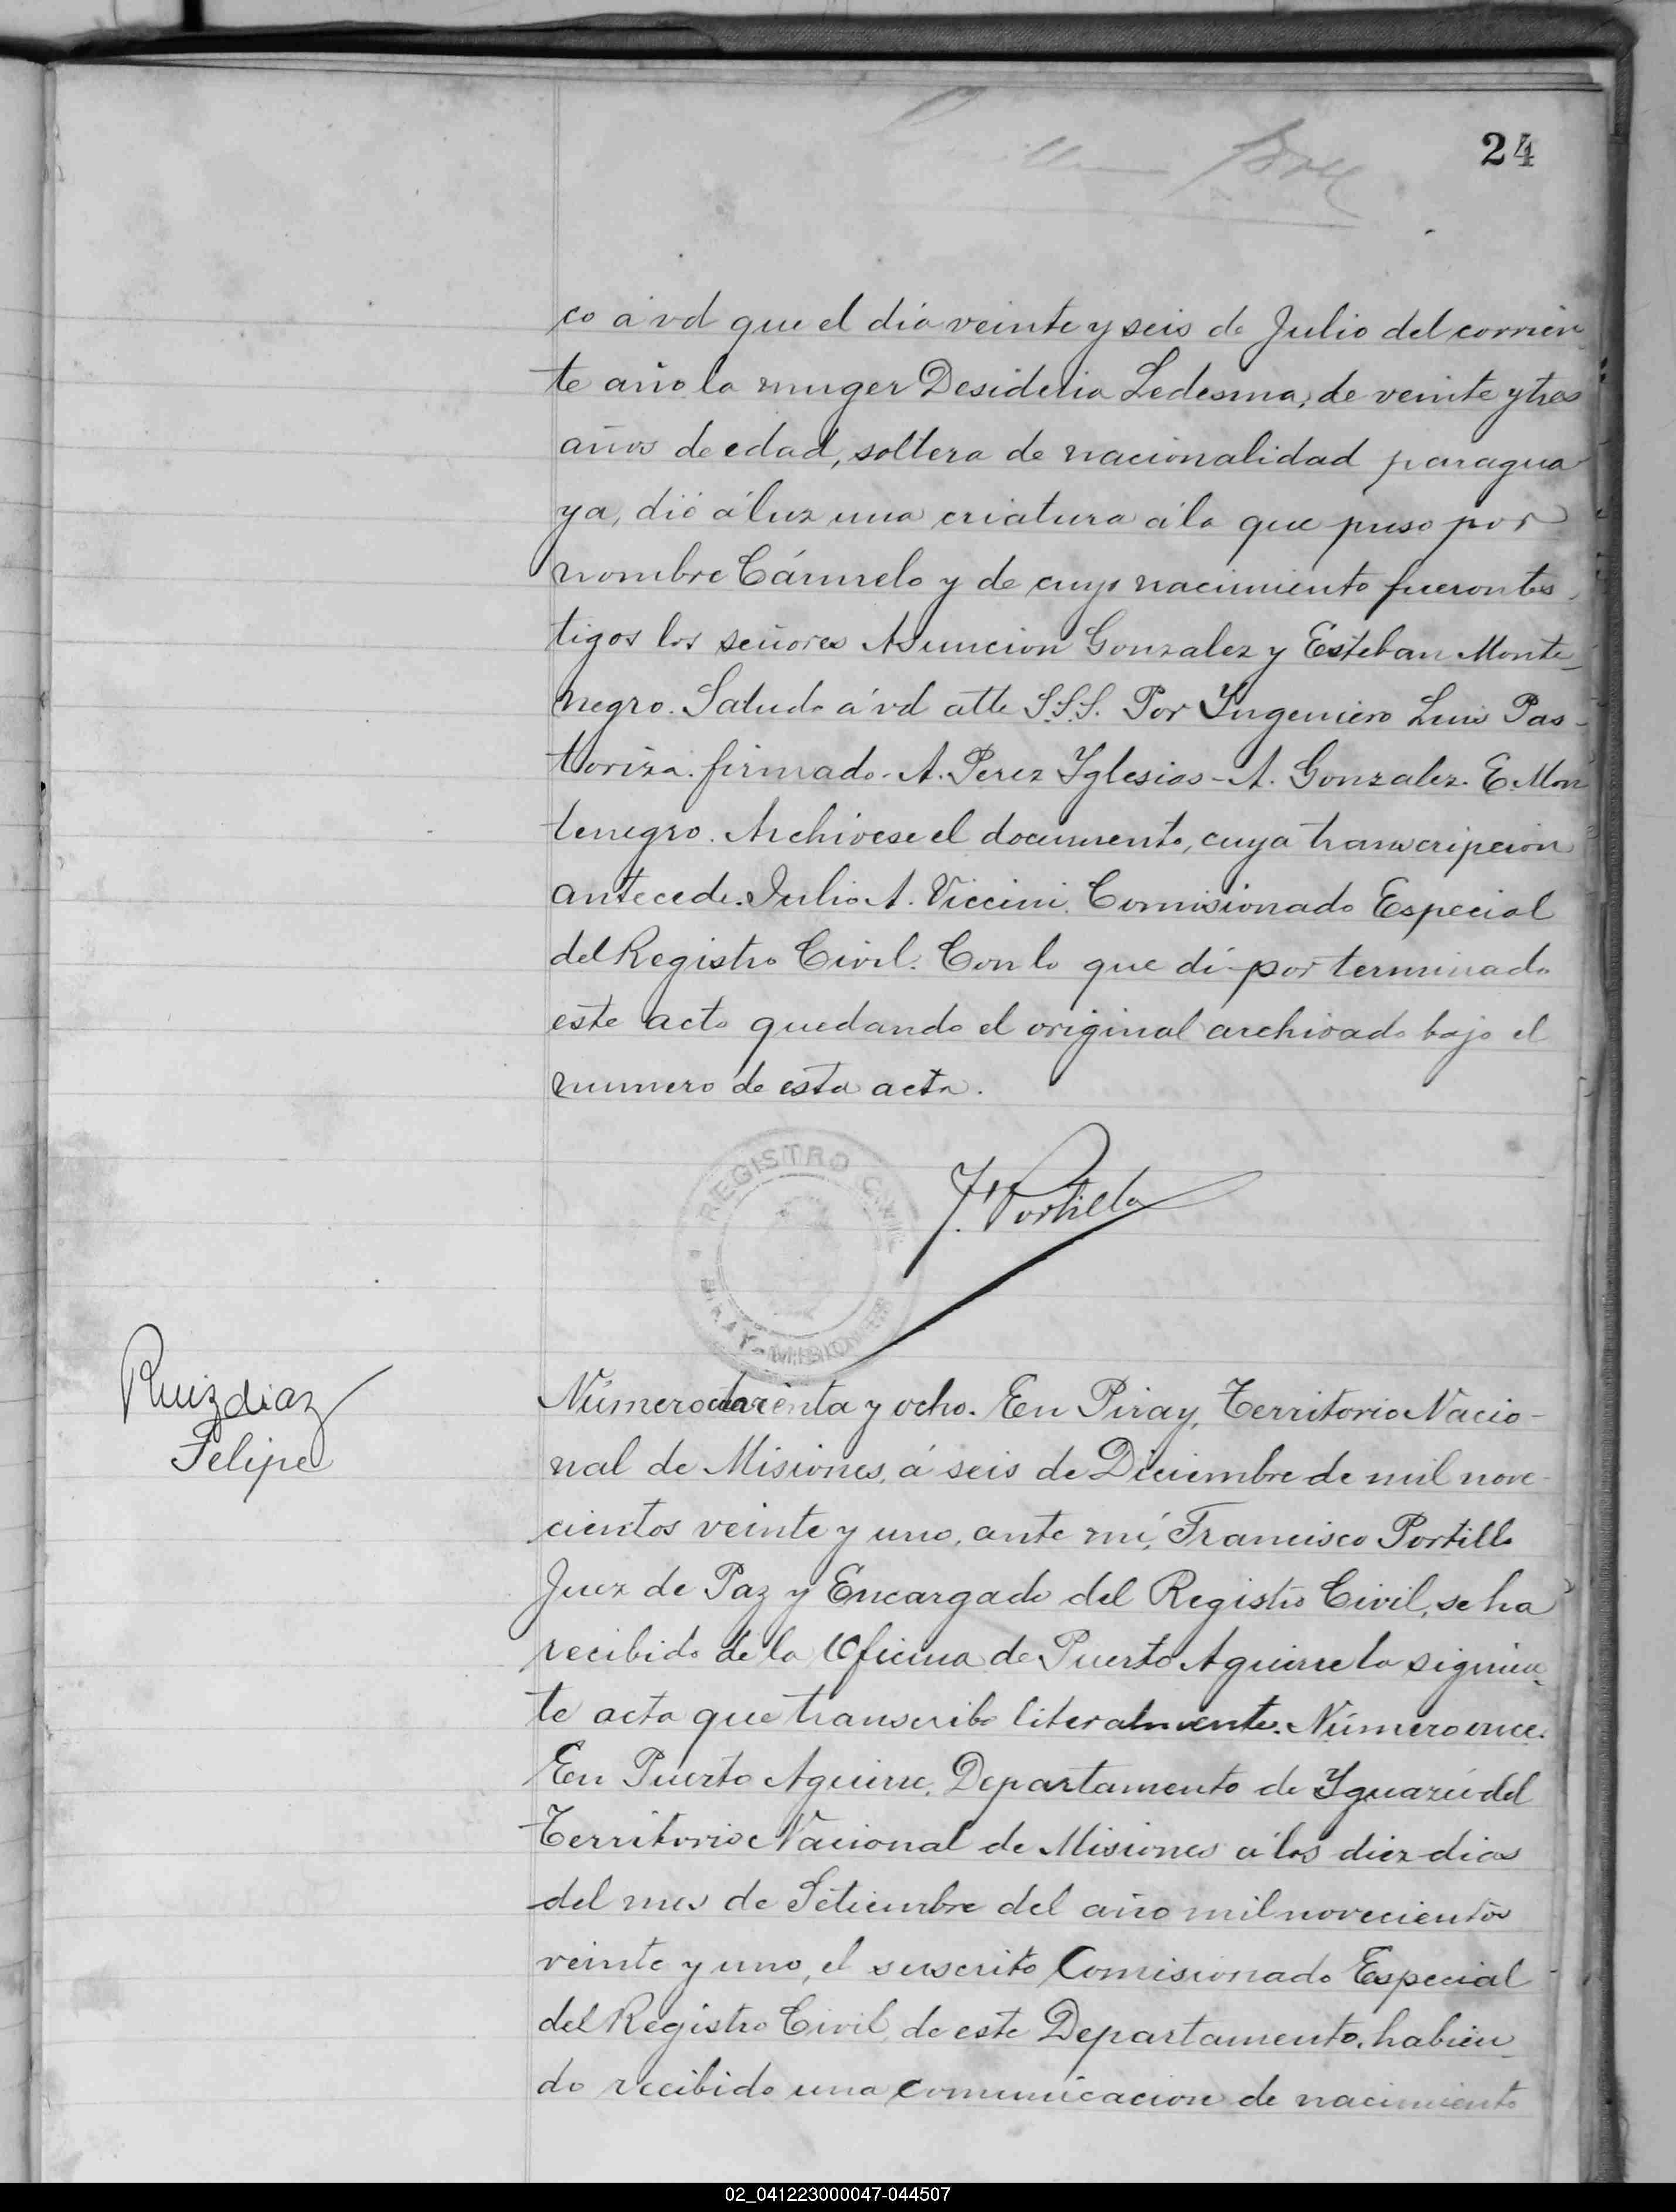 24
co á vd que el dia veinte y seis de Julio del corrien
te año la muger Desidelia Ledesma, de veinte y tres
años de edad, soltera de nacionalidad paragua
ya, dió á luz una criatura á la que puso por
nombre Cármelo y de cuyo nacimiento fueron tes
tigos los señores Asuncion Gonzalez y Esteban Monte
negro. Saludo á vd atte S.S.S. Por Yngeniero Luis Pas-
toriza. firmado. A. Perez Yglesias - A. Gonzalez. E. Mon
tenegro. Archivese el documento, cuya transcripcion
antecede. Julio A. Viccini. Comisionado Especial
del Registro Civil. Con lo que dí por terminado
este acto quedando el original archivado bajo el
numero de esta acta.
REGISTRO CIVIL
PIRAY - MISIONES
F. Portillo
Ruizdiaz
Felipe
Número y ocho. En Piray, Territorio Nacio-
nal de Misiones, á seis de Diciembre de mil nove
cientos veinte y uno, ante mí, Francisco Portillo
Juez de Paz y Encargado del Registro Civil, se ha
recibido de la Oficina de Puerto Aguirre la siguien
te acta que transcribo literalmente. Número once.
En Puerto Aguirre, Departamento de Yguazú del
Territorio Nacional de Misiones á los diez dias
del mes de Setiembre del año mil novecientos
veinte y uno, el suscrito Comisionado Especial
del Registro Civil, de este Departamento, habien
do recibido una comunicacion de nacimiento
02_041223000047-044507